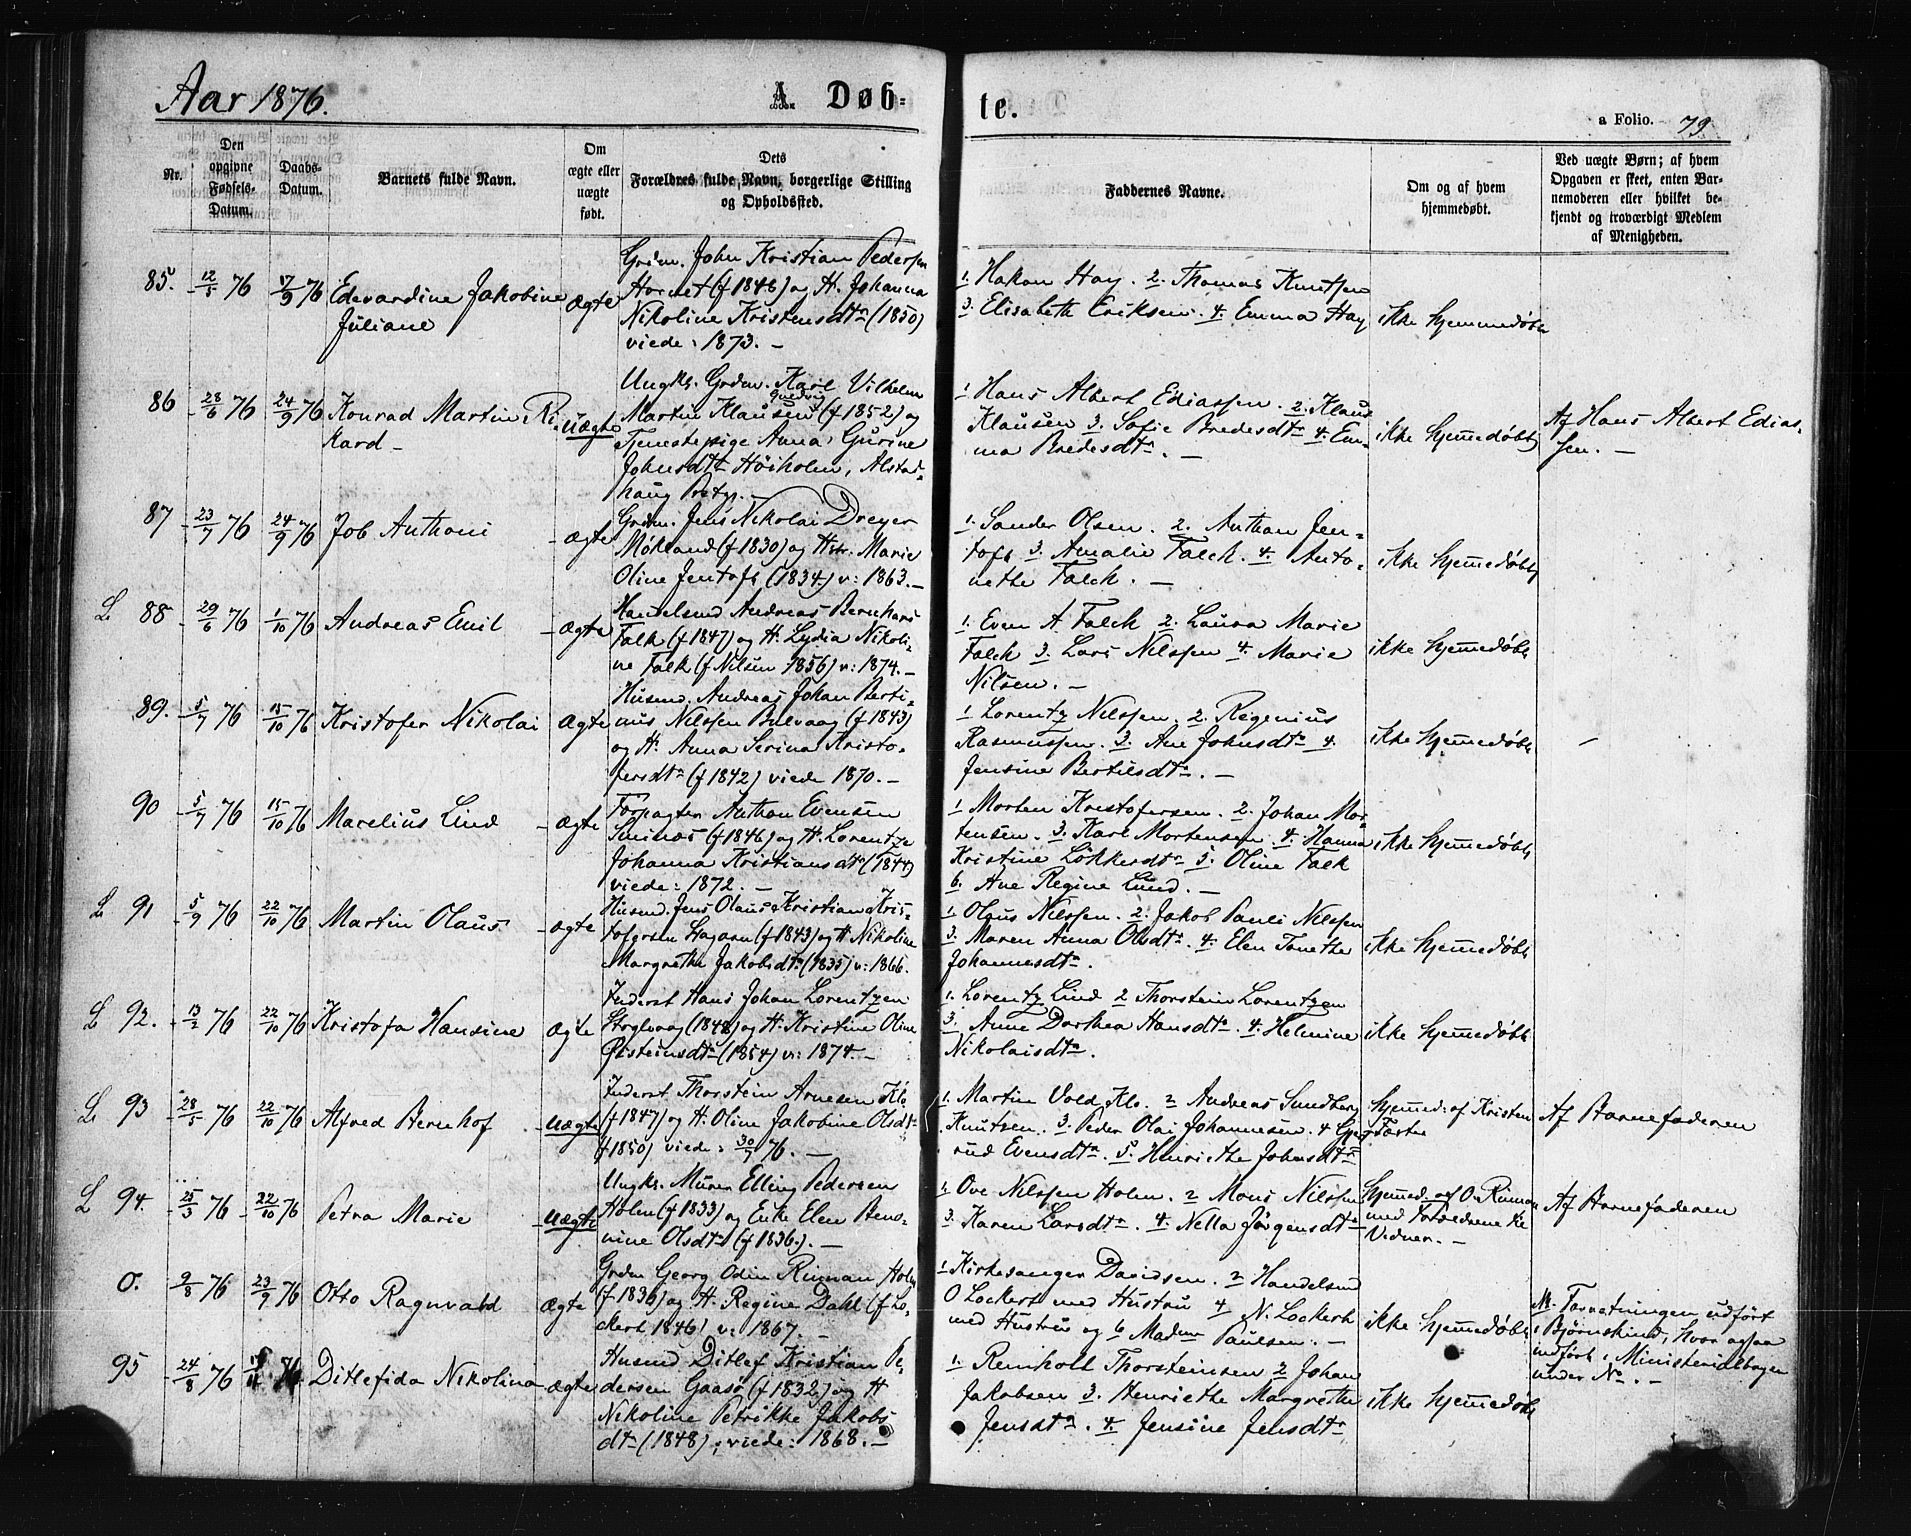 Aar 1876.
A. Døb=
te.
a Folio. 79
Nr.
Den opgivne Fødsels-Datum.
Daabs-Datum.
Barnets fulde Navn.
Om ægte eller uægte født.
Dets Forældres fulde Navn, borgerlige Stilling og Opholdssted.
Faddernes Navne.
Om og af hvem hjemmedøbt.
Ved uægte Børn; af hvem Opgaven er skeet, enten Barnemoderen eller hvilket bekjendt og troværdigt Medlem af Menigheden.
85. 12/5 76 17/9 76 Edevardine Jakobine
Juliane
ægte
Grdm. John Kristian Pedersen
Hornet (f 1848) og H. Johanna
Nikoline Kristensdtr (1850)
viede: 1873. —
1. Hakon Hay. 2. Thomas Knutsen
3. Elisabeth Eriksen. 4. Emma Hay
ikke hjemmedøbt
86 28/6 76 24/9 76 Konrad Martin Ri-
kard —
uægte
Ungk. Grdm. Karl Vilhelm
Martin Klausen (f 1852) og
Tjenestepige Anna Gurine
Johnsdtr Höiholm, Alstad-
haug Prstgj. —
1 Hans Albert Ediassen. 2. Klaus
Klausen 3. Sofie Bredesdtr 4. Em-
ma Bredesdtr. —
ikke hjemmedøbt
Af Hans Albert Edias-
sen. —
87 23/7 76 24/9 76 Job Anthoni
ægte
Grdm. Jens Nikolai Dreyer
Mökland (f 1830) og Hstr. Marie
Oline Jentoft (1834) v: 1863. —
1. Sander Olsen. 2. Anthon Jen-
toft 3. Amalie Falch. 4. Anto-
nette Falch. —
ikke hjemmedøbt
L. 88 29/6 76 1/10 76 Andreas Emil
ægte
Handelsmd Andreas Bernhard
Falk (f 1847) og H. Lydia Nikoli-
ne Falk (f Nilsen 1856) v: 1874. —
1. Even A Falch 2. Laura Marie
Falch 3. Lars Nilssen 4. Marie
Nilsen. —
ikke hjemmedøbt
89. 5/7 76 15/10 76 Kristofer Nikolai
ægte
Husmd. Andreas Johan Berti-
nus Nilssen Bulvaag (f 1843)
og H. Anna Serina Kristo-
fersdtr (f 1842) viede 1870. —
1 Lorentz Nilssen. 2. Regenius
Rasmussen. 3. Ane Johnsdtr 4.
Jensine Bertilsdtr. —
ikke hjemmedøbt
90 5/7 76 15/10 76 Marelius Lind
ægte
Forpagter Anthon Evensen
(f 1846) og H. Lorentze
Johanna Kristiansdtr (1844)
viede: 1872. —
1 Morten Kristofersen. 2. Johan Mor-
tensen. 3. Karl Mortensen 4. Hanna
Kristine Lökkesdtr 5. Oline Falk
6. Ane Regine Lund. —
ikke hjemmedøbt
L 91 5/9 76 22/10 76 Martin Olaus
ægte
Husmd. Jens Olaus Kristian Kris-
tofersen Hagarn (f 1843) og H Nikoline
Margrethe Jakobsdtr (1835) v: 1866.
1. Olaus Nilssen. 2. Jakob Pauli Nilssen
3. Maren Anna Olsdtr. 4. Elen Tonette
Johannesdtr.
ikke hjemmedøbt
L 92. 13/2 76 22/10 76 Kristofa Hansine
ægte
Inderst Hans Johan Lorentzen
(1848) og H. Kristine Oline
Östeinsdtr (1854) v: 1874. —
1. Lorentz Lind 2 Thorstein Lorentzen
3. Anne Dorthea Hansdtr. 4. Helmine
Nikolaisdtr.
ikke hjemmedøbt
L 93 28/5 76 22/10 76 Alfred Bernhof
uægte
Inderst Thorstein Arnesen Klo
(f 1847) og H. Oline Jakobine Olsdtr
f 1850) viede: 30/7 76. —
1. Martin Vold, Klo. 2 Andreas Sundberg
Knutsen. 3. Peder Olai Johannesen. 4 Gje-
rud Evensdtr. 5. Henriette Johnsdtr
hjemmed: af Kristen
Tarstre
Af Barnefaderen
L 94. 25/3 76 22/10 76 Petra Marie
uægte
Ungk. Murer Elling Pedersen
Holm (f 1833) og Enke Elen Beno-
nine Olsdtr (f 1836). —
1. Ove Nilssen Holm. 2 Mons Nilssen
3. Karen Larsdtr. 4. Nella Jörgensdtr
hjemmed. af O. Rinnan
med Forældrene til
Vidner. —
Af Barnefaderen
0. 9/8 76 23/9 76 Otto Ragnvald
ægte
Grdm Georg Odin Rinnan Holm
(f 1836) og H. Regine Dahl (f Lo-
ckert 1846) v: 1867. —
1 Kirkesanger Davidsen. 2 Handelsmd
O Lockert med Hustru 4 N. Lockert
med Hustru og 6 Madm Paulsen. —
ikke hjemmedøbt
M. Forretningen udført
i Björnskind, hvor ogsaa
indført i Ministerialbogen
under No. —
95 24/8 76 76 Ditlefida Nikolina
ægte
Husmd Ditlef Kristian Pe-
dersen Gaasö (f 1832) og H
Nikoline Petrikke Jakobs
dtr (1848), viede: 1868. —
1. Reinholt Thorsteinsen 2 Johan
Jakobsen 3. Henriette Margrethe
Jensdtr. 4. Jensine Jensdtr
ikke hjemmedøbt